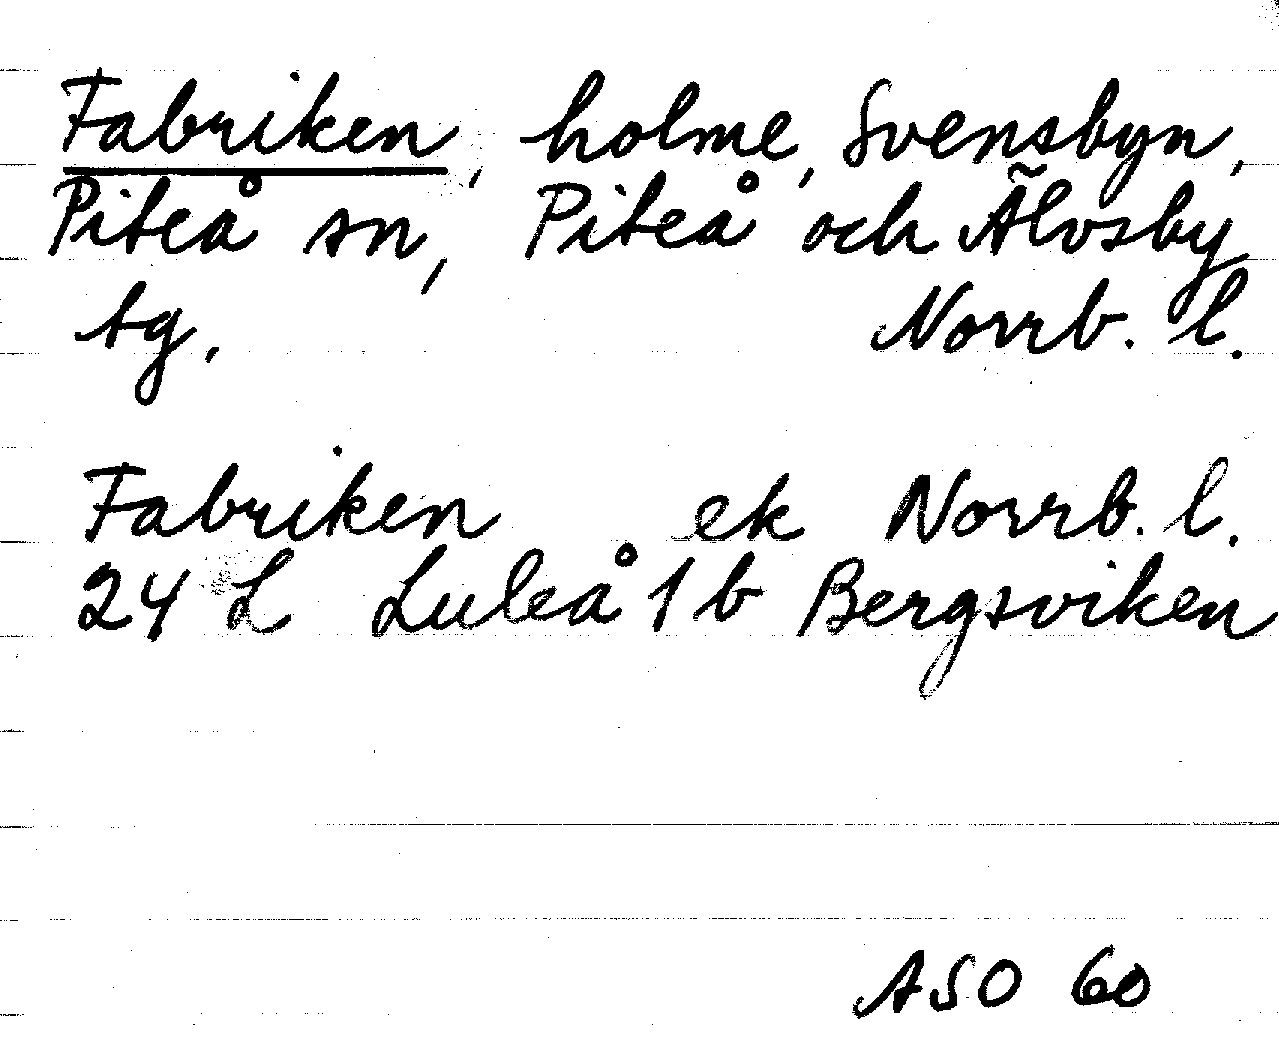 Fabriken, holme, Svensbyn,
Piteå sn, Piteå och Älvsby
tg. Norrb. l.
Fabriken ek Norrb. l.
24 L Luleå 1 b Bergsviken
ASO 60